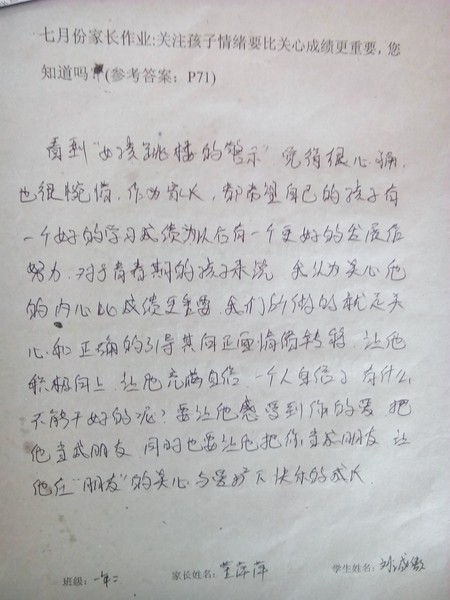 七月份家长作业:关注孩子情绪要比关心成绩更重要,您
知道吗 (参考答案：P71)
看到“女孩跳楼的警示”觉得很心痛
也很惋惜，作为家长，都希望自己的孩子有
一个好的学习成绩为以后有一个更好的发展
努力．对于青春期的孩子来说 我认为关心他
的内心比成绩更重要．我们所做的就是关
心和正确的引导其向正面情绪转移．让他
积极向上．让他充满自信．一个人自信了 有什么
不能干好的呢？要让他感受到你的爱 把
他当成朋友 同时也要让他把你当成朋友 让
他在“朋友”的关心与爱护下快乐的成长
班级：一年二 家长姓名： 萍萍 学生姓名：